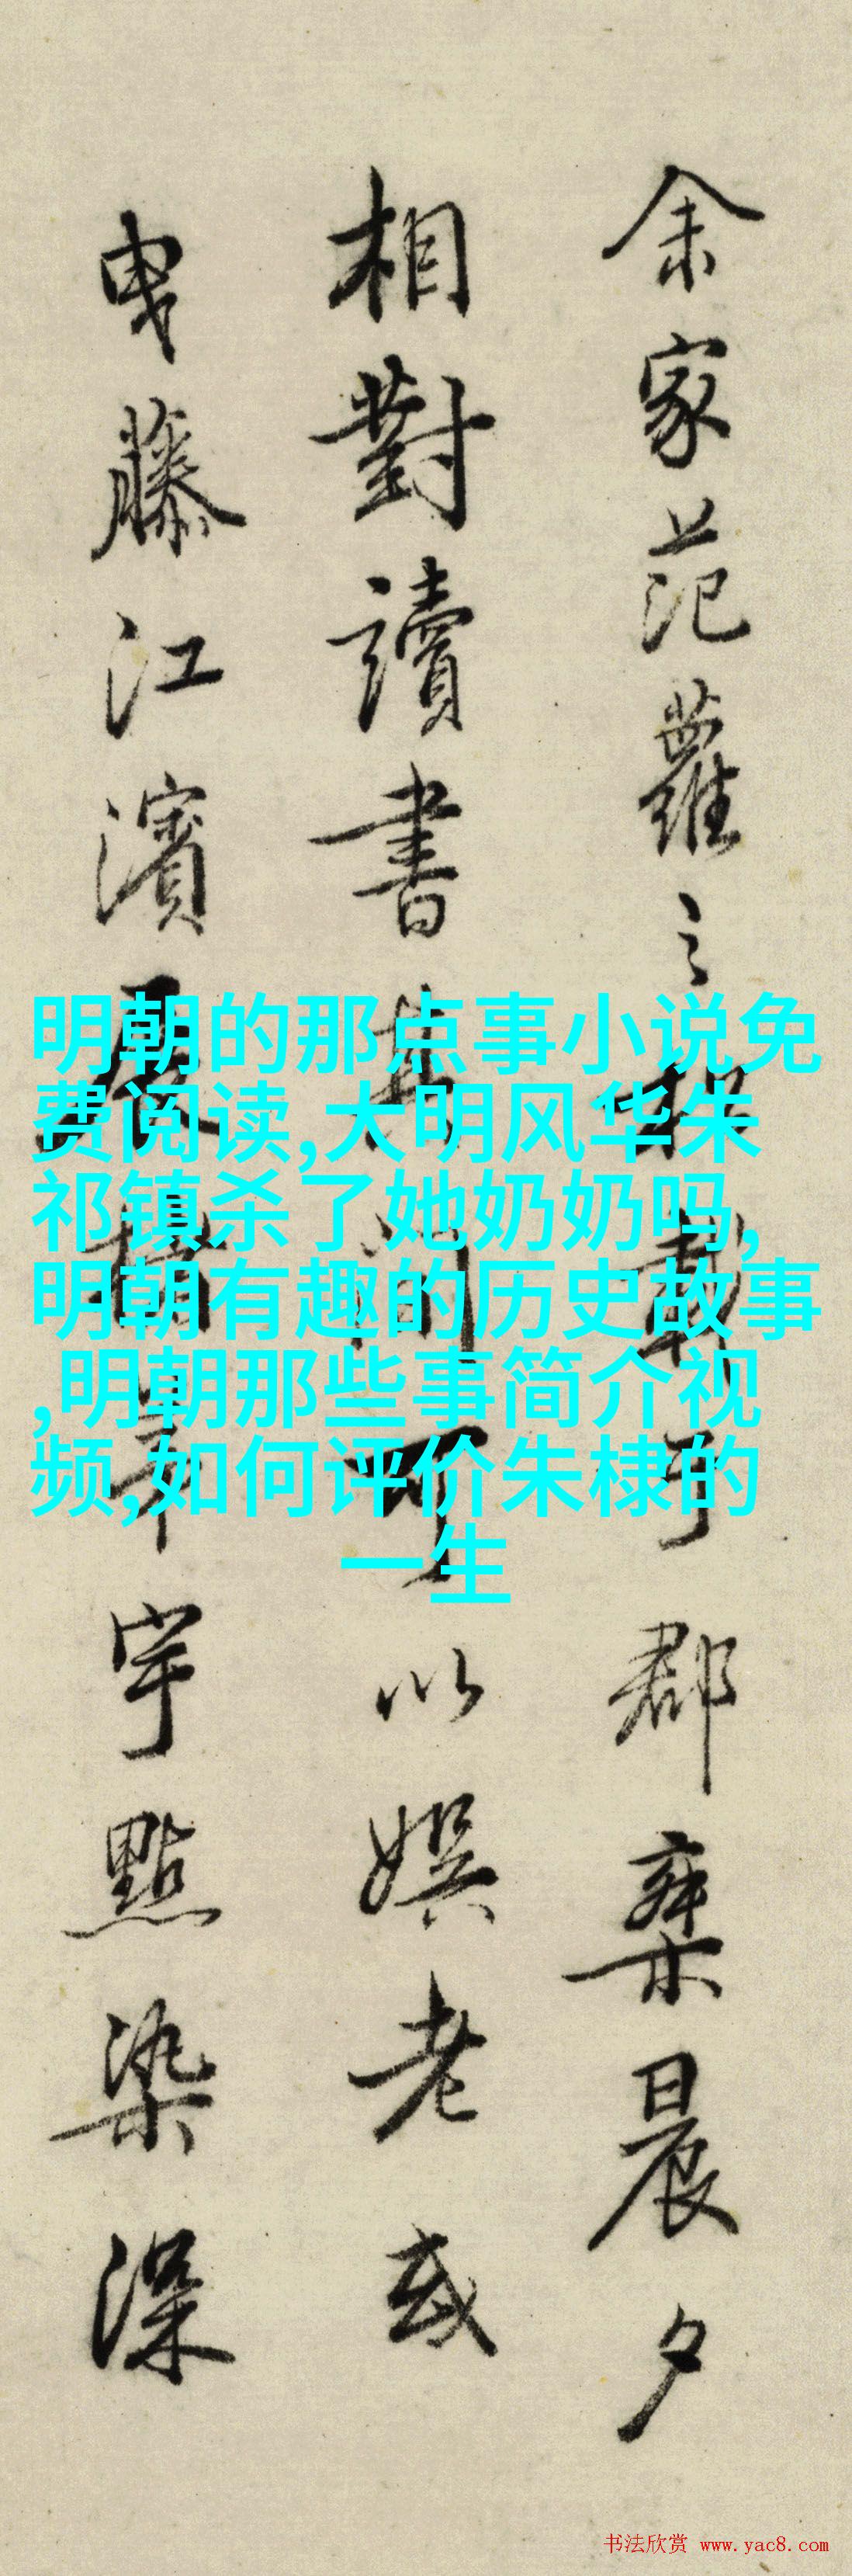 余家范蘿之
郡棐晨夕
相對讀書
以娯老或
曳藤江濱
宇點染深
明朝的那点事小说免
费阅读,大明风华朱
祁镇杀了她奶奶吗,
明朝有趣的历史故事
,明朝那些事简介视
频,如何评价朱棣的
一生
书法欣赏 www.yac8.com